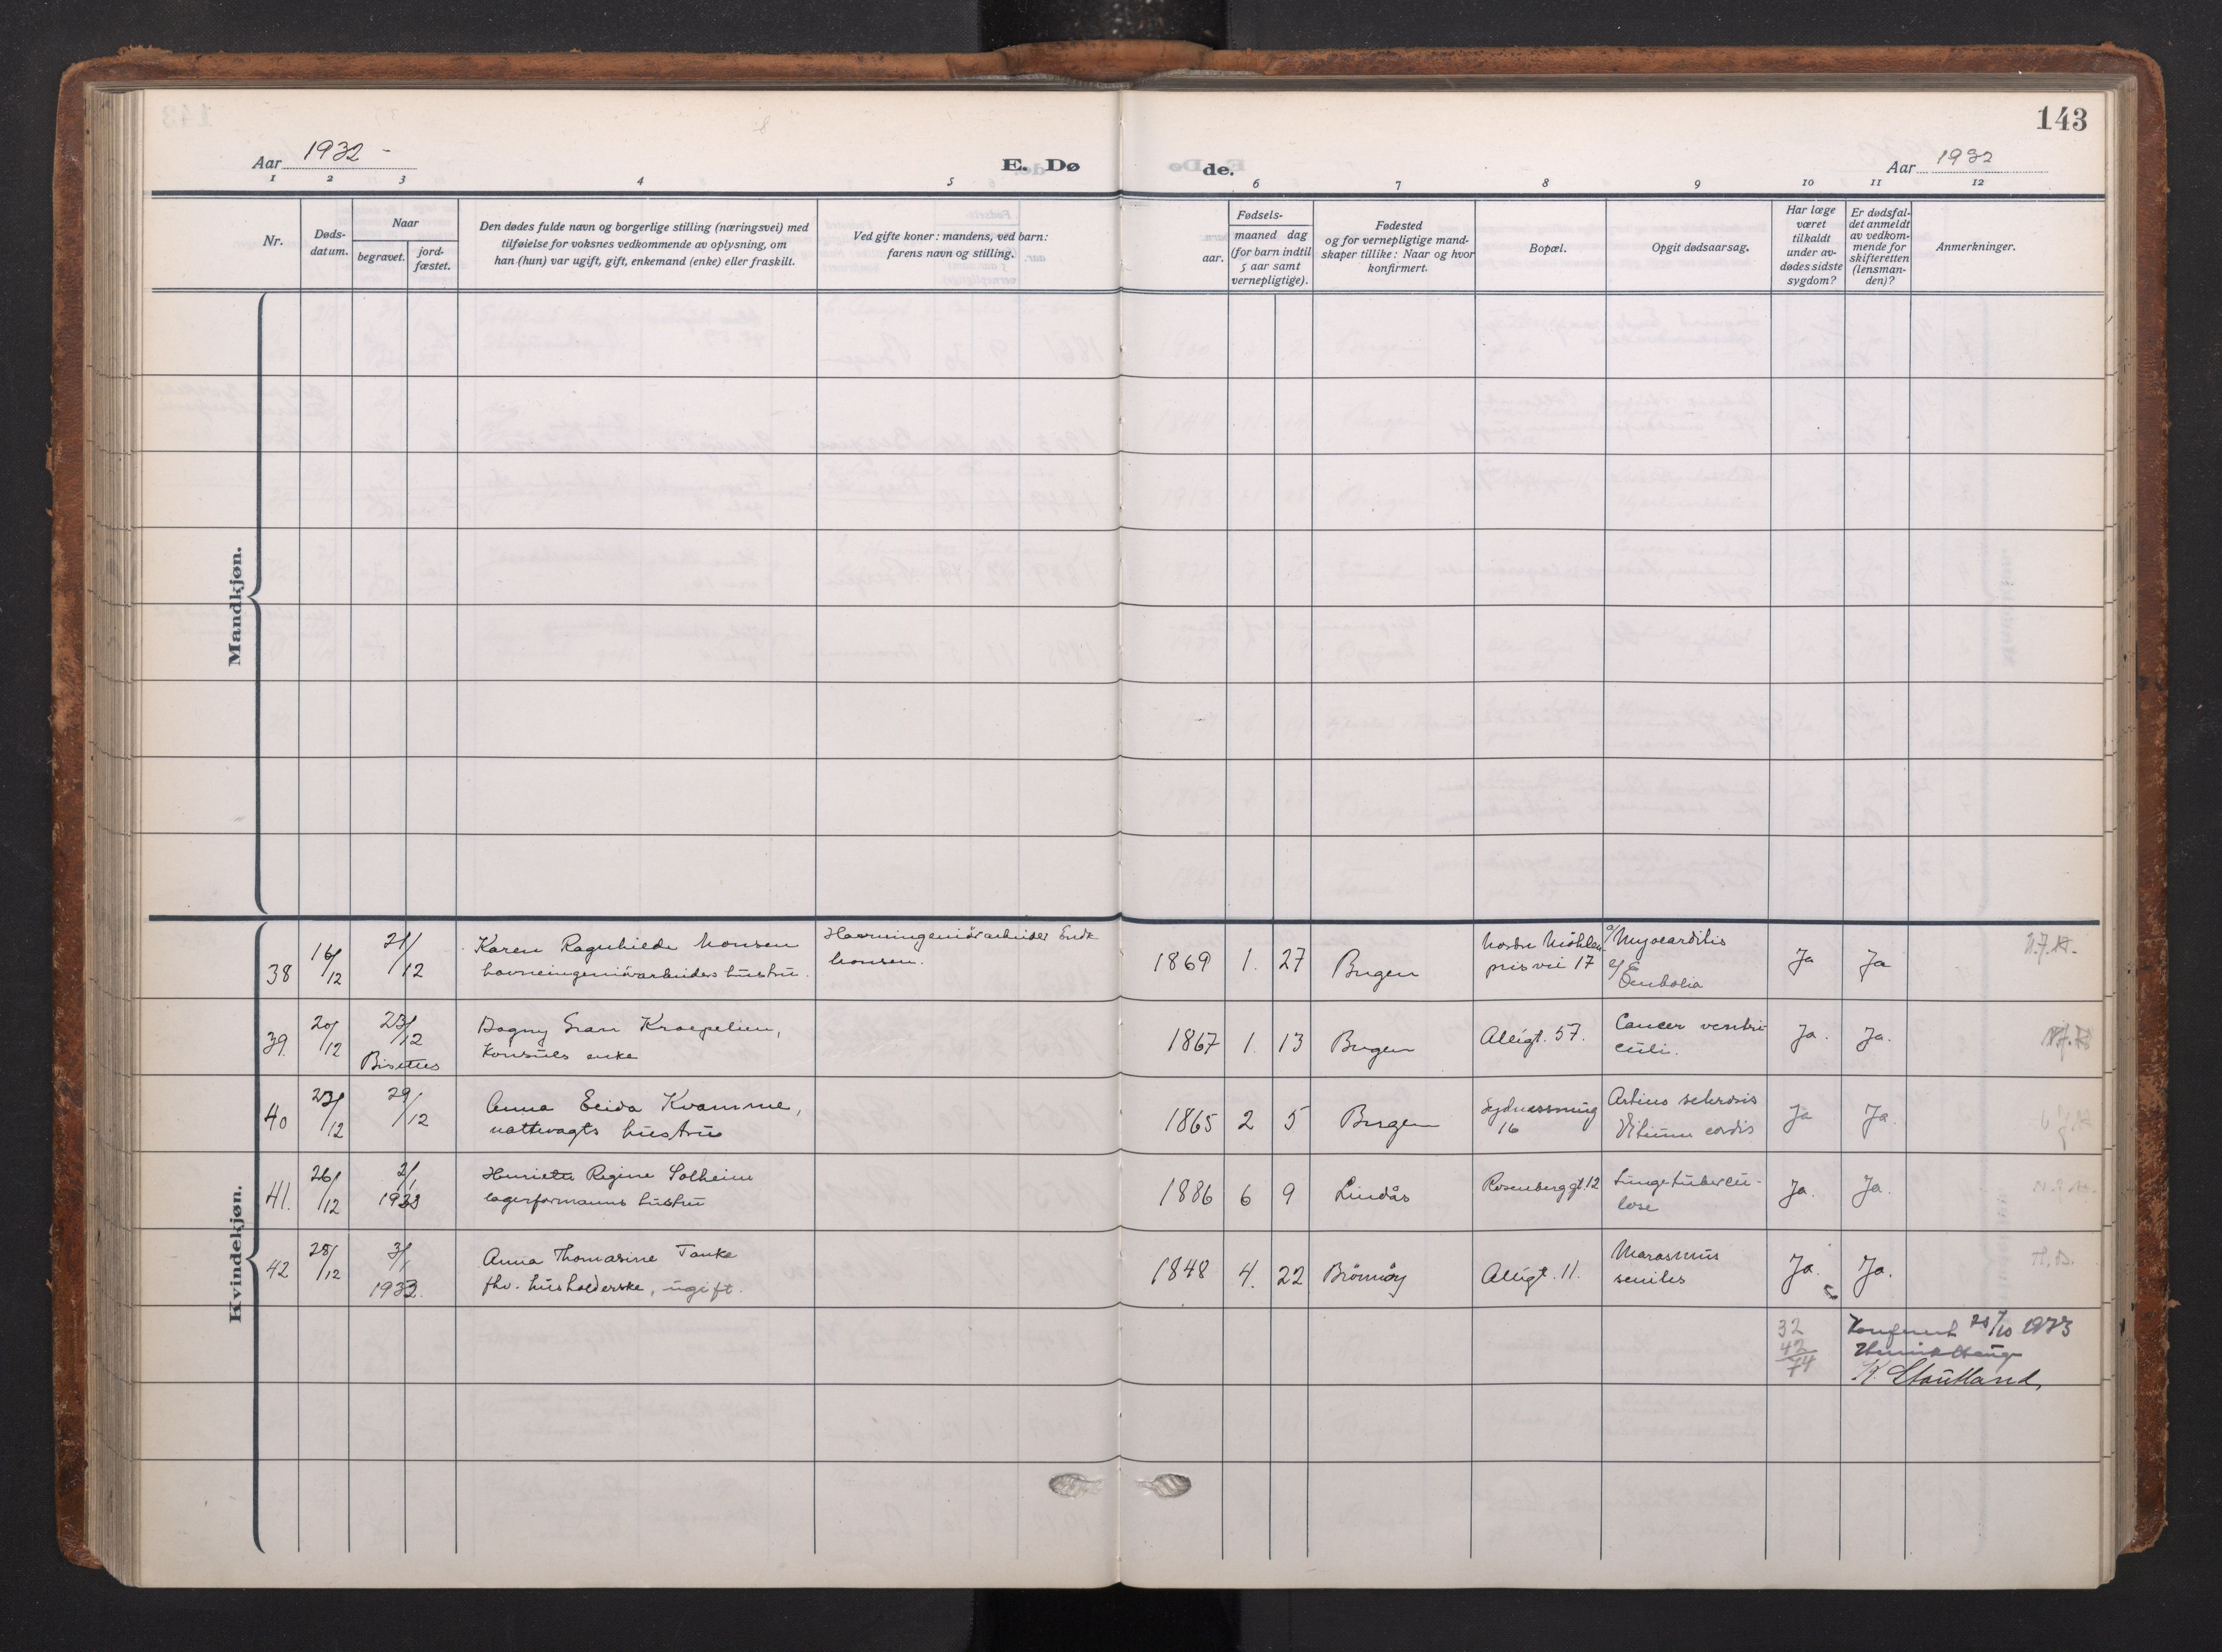 143
Aar 1932 -
E. Dø
de.
Aar 1932
1 2 3 4 5 6 7 8 9 10 11 12
Nr.
Døds-
datum.
Naar
begravet.
jord-
fæstet.
Den dødes fulde navn og borgerlige stilling (næringsvei) med
tilføielse for voksnes vedkommende av oplysning, om
han (hun) var ugift, gift, enkemand (enke) eller fraskilt.
Ved gifte koner: mandens, ved barn:
farens navn og stilling.
aar.
Fødsels-
maaned dag
(for barn indtil
5 aar samt
vernepligtige).
Fødested
og for vernepligtige mand-
skaper tillike: Naar og hvor
konfirmert.
Bopæl.
Opgit dødsaarsag.
Har læge
været
tilkaldt
under av-
dødes sidste
sygdom?
Er dødsfal-
det anmeldt
av vedkom-
mende for
skifteretten
(lensman-
den)?
Anmerkninger.
Mandkjøn.
Kvindekjøn.
38 16/12 21/12 Karen Ragnhilde Monsen
havneingeniörarbeiders hustru.
Havneingeniörarbeider
Monsen.
1869 1. 27 Bergen
Nordre Möhlen
prisvei 17
Myocarditis
Embolia
Ja Ja
39. 20/12 23/12
Bisettes
Dagny Gran Kraepelien,
Konsuls enke
1867 1. 13 Bergen Allégt. 57. Cancer ventri-
culi.
Ja. Ja.
40 23/12 29/12 Anna Kvamme,
nattvagts hustru
1865 2 5 Bergen Sydnessmug
16
sclerosis
Vitium cordis
Ja Ja.
41. 26/12 2/1
1933
Henriette Regine Solheim
lagerformanns hustru
1886 6 9 Lindås Rosenberggt. 12 Lungetuberku-
lose
Ja. Ja.
42 28/12 3/1
1933.
Anna Thomasine Tanke
fhv. husholderske, ugift.
1848 4. 22 Brönnöy Allégt. 11. Marasmus
senilis
Ja. Ja.
32
42
74
Konferert 1933
K. Stautland